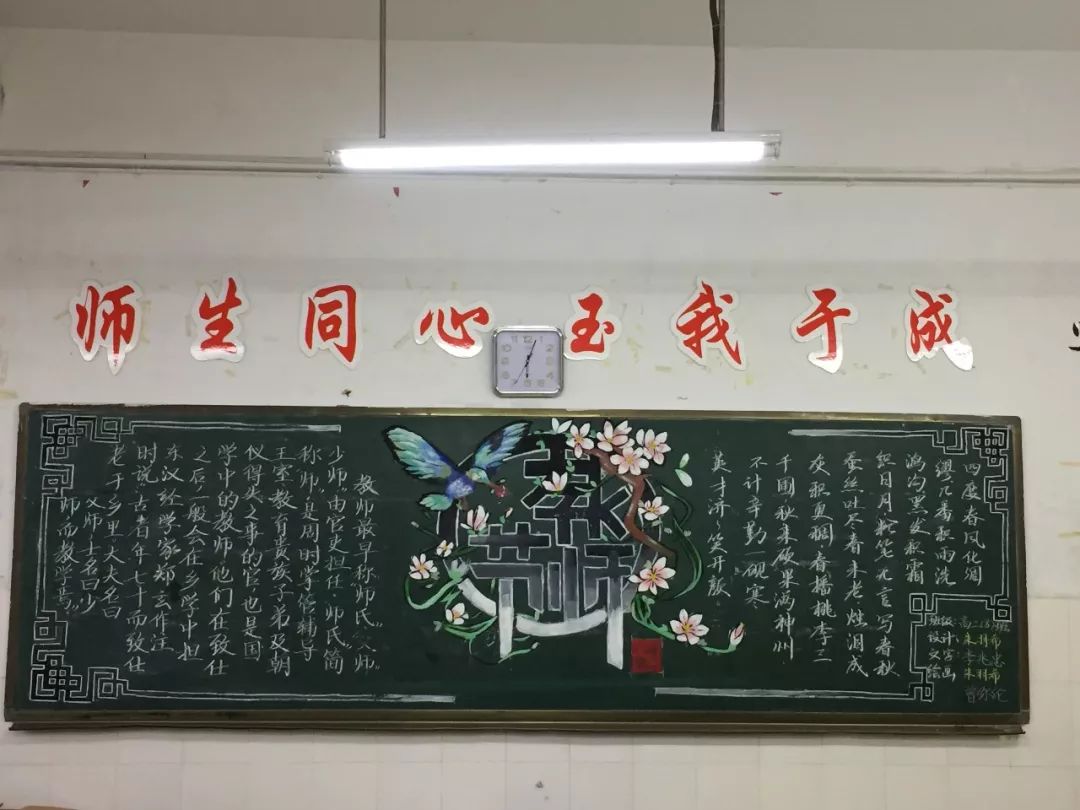 师生同心玉我于成
四度春风化绸
缪几番秋雨洗
鸿沟黑发积霜
织日月粉笔无言写春秋
蚕丝吐尽春未老烛泪成
灰 更稠春播桃李三
千圃秋来硕果满神州
不计辛勤一砚寒
英才济々笑开颜
班级
设计
文字
绘画
教师节
教师最早称师氏“父师”
少师”由官吏担任。师氏简
称“师”是周时学官辅导
王室教育贵族子弟及朝
仪得失之事的官,也是国
学中的教师。他们在致仕
之后一般会在乡学中担
东汉经学家郑玄作注
时说:古者年七十而致仕
老于乡里大夫名曰
父师,士名曰少
师而教学焉”